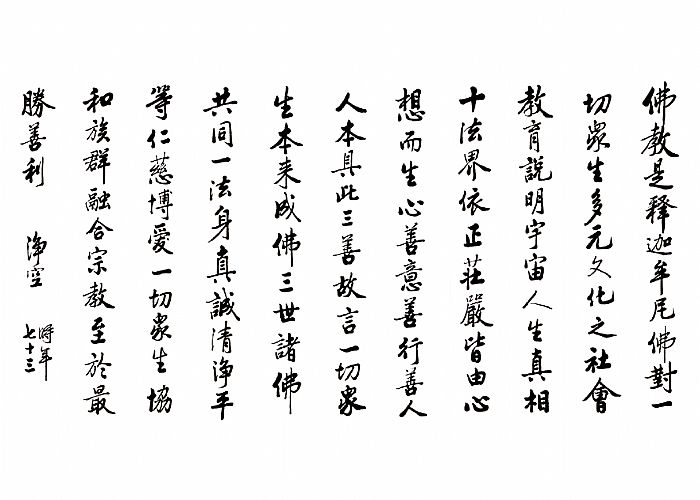 佛教是釋迦牟尼佛對一
切眾生多元文化之社會
教育說明宇宙人生真相
十法界依正莊嚴皆由心
想而生心善意善行善人
人本具此三善故言一切眾
生本来成佛三世諸佛
共同一法身真誠清淨平
等仁慈博愛一切眾生協
和族群融合宗教至於最
勝善利 淨空
時年
七十三